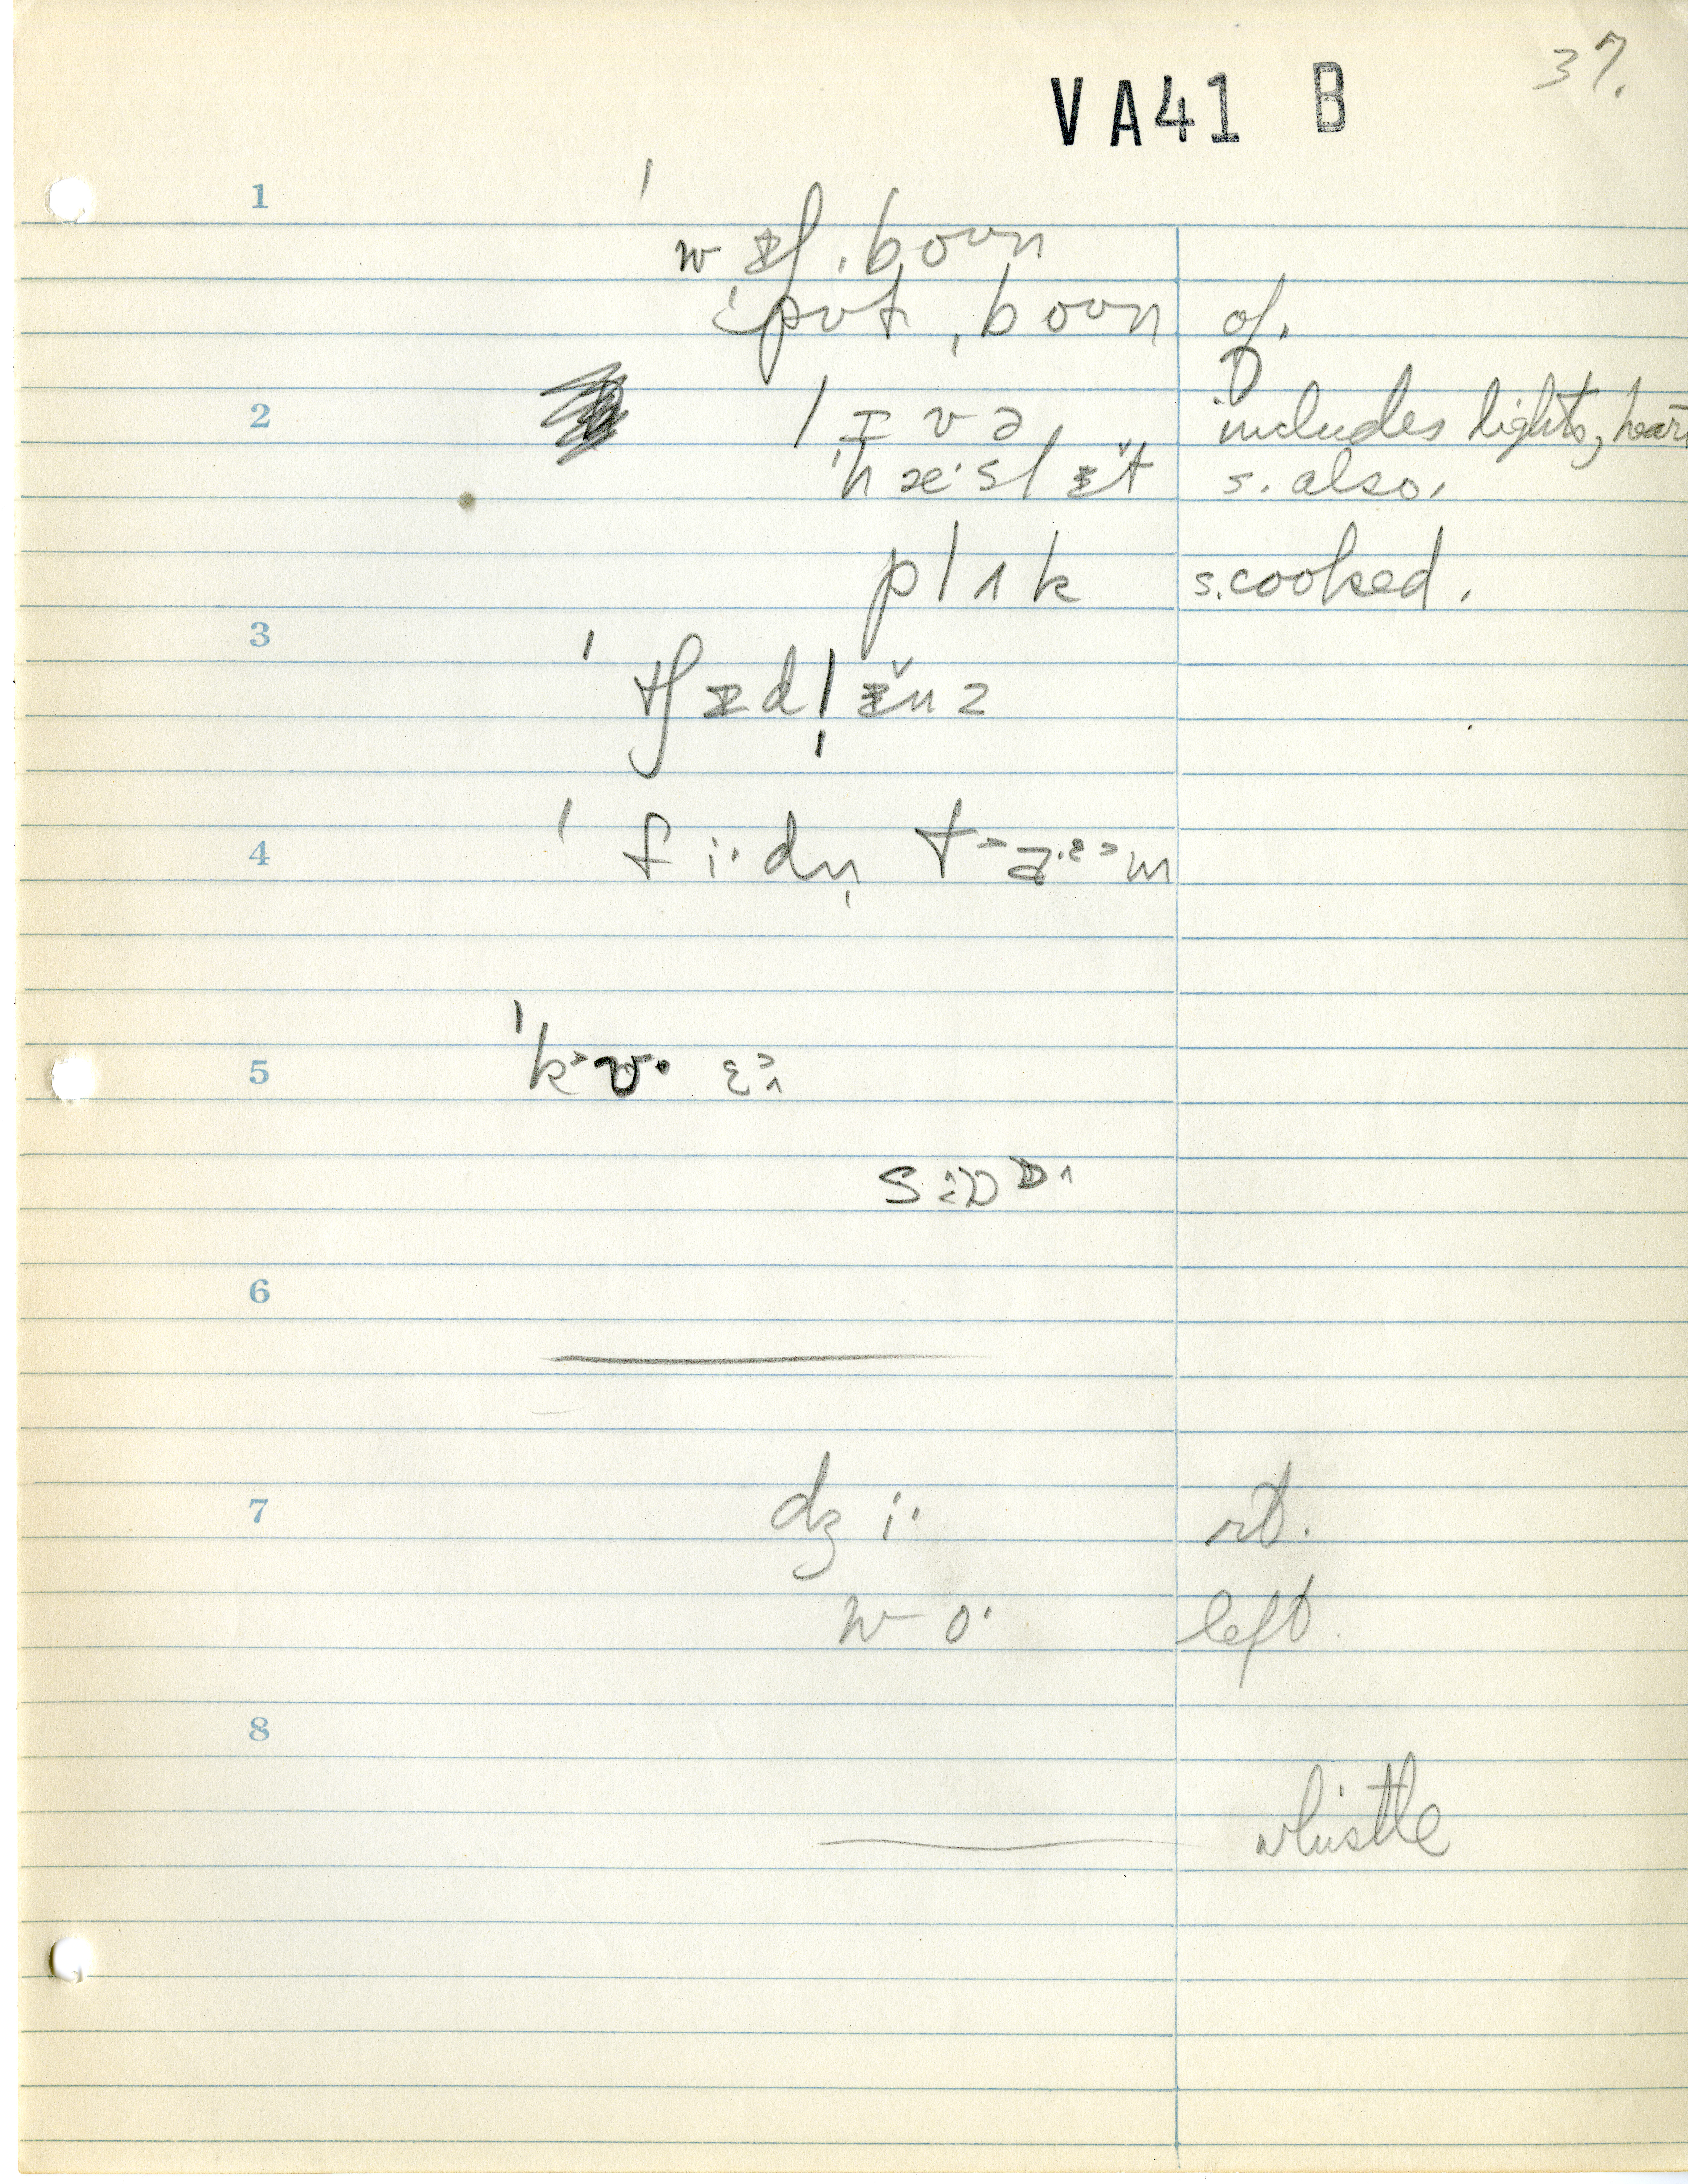 37.
VA41 B
1
ˈwɪʃˌboʊn
ˈpʊtˌboʊn of.
2 lɪvə includes lights, heart
ˈhæˑslɪ̆t s. also.
plʌk s. cooked.
3
ˈtʃɪdl̩ɪ̆nz
4 ˈfiˑdn̩
5
6
7 dʒiˑ rt.
woˑ left
8
whistle